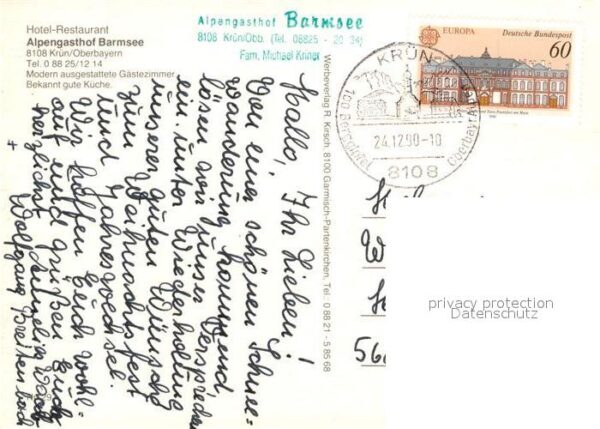 Hotel-Restaurant
Alpengasthof Barmsee
8108 Krün/Oberbayern
Tel. 0 88 25/12 14
Modern ausgestattete Gästezimmer
Bekannt gute Küche.
Alpengasthof Barmsee
8108 Krün/Obb. (Tel. 08825 - 20 34)
Fam. Michael Kriner
Werbeverlag R. Kirsch, 8100 Garmisch-Partenkirchen, Tel.: 0 88 21 - 5 85 68
EUROPA Deutsche Bundespost
60
KRÜN
24.12.90-10
8108
Hallo, Ihr Lieben!
Von einer schönen Schnee-
wanderung kommend
lösen wir unser Versprechen
ein, unter Wiederholung
unserer guten Wünsche
zum Weihnachtsfest
und Jahreswechsel.
Wir hoffen Euch wohl-
auf und grüßen Euch
herzlichst
+ Wolfgang
W
56
privacy protection
Datenschutz